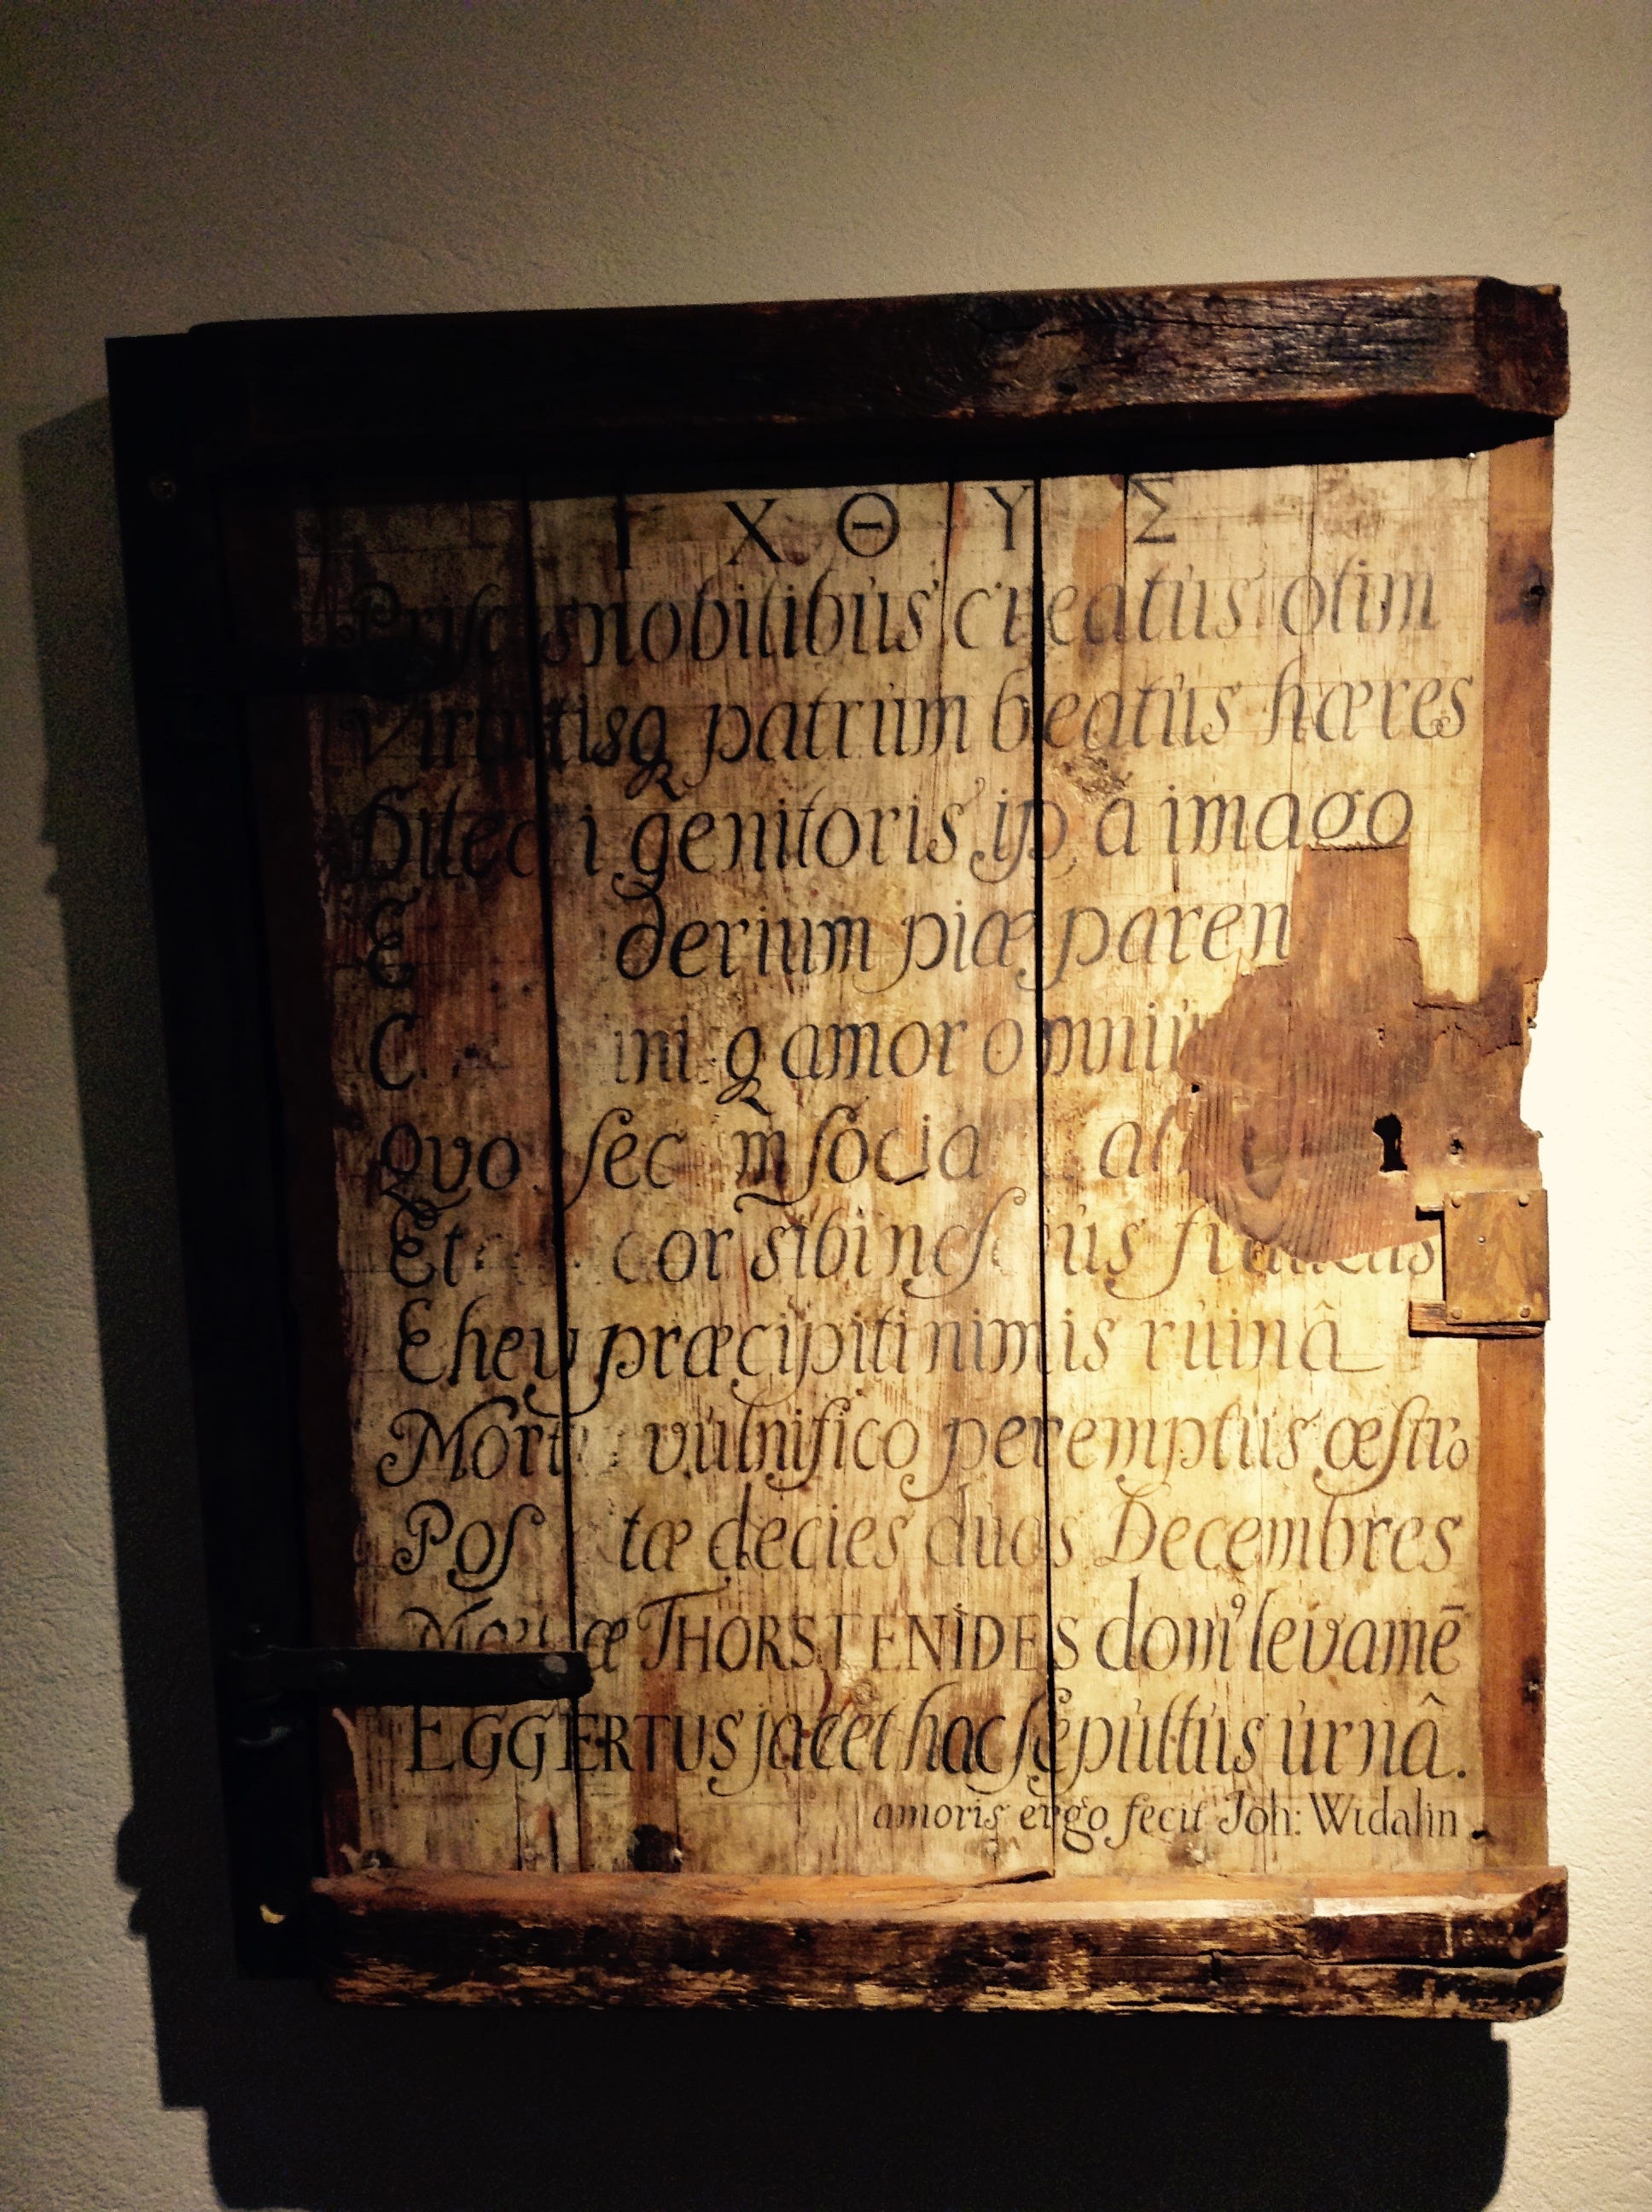 Ι Χ Θ Υ Σ
nobilibus creatus olim
Virtutisq patrum beatus hæres
Dilecti genitoris ipsa imago
derium piæ paren
C ini q amor omniu
Quo sec m socia
Et cor sibi
Eheu præcipiti nimis ruinâ
Mort vulnifico peremptus æstro
Pos tæ decies duos Decembres
THORSTENIDES dom⁹ levamē
EGGERTUS jacet hac sepultus urnâ.
amoris ergo fecit Joh: Widalin